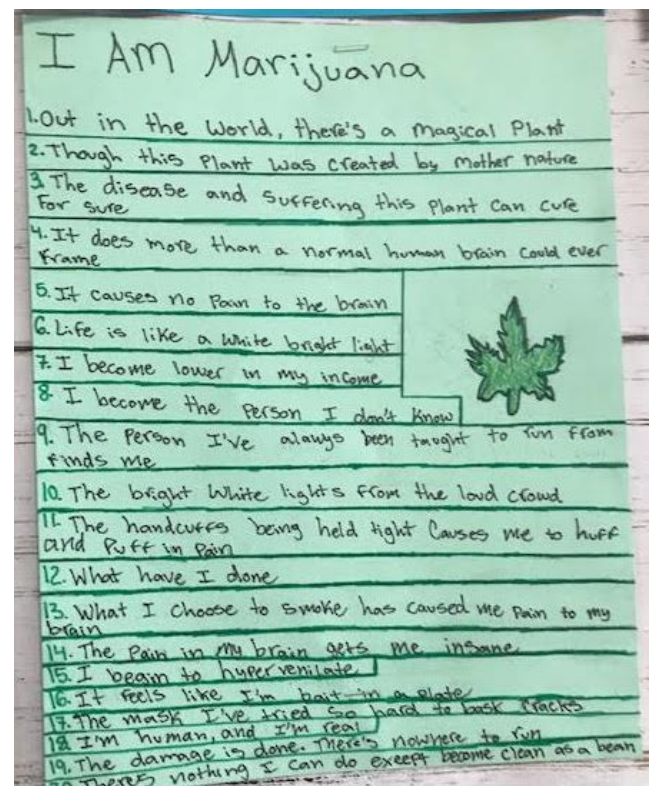 I Am Marijuana
1. Out in the World, there's a magical Plant
2. Though this Plant was created by mother nature
3. The disease and suffering this Plant can cure
For sure
4. It does more than a normal human brain could ever
Frame
5. It causes no Pain to the brain
6. Life is like a white bright light
7. I become lower in my income
8. I become the Person I don't know
9. The Person I've always been taught to run from
finds me
10. The bright white lights from the loud crowd
11. The handcuffs being held tight Causes me to huff
and Puff in Pain
12. What have I done
13. What I choose to smoke has caused me Pain to my
brain
14. The Pain in my brain gets me insane
15. I begain to hypervenilate
16. It feels like I'm bait in a Plate
17. The mask I've tried so hard to bask cracks
18. I'm human, and I'm real
19. The damage is done. There's nowhere to run
There's nothing I can do except become clean as a bean